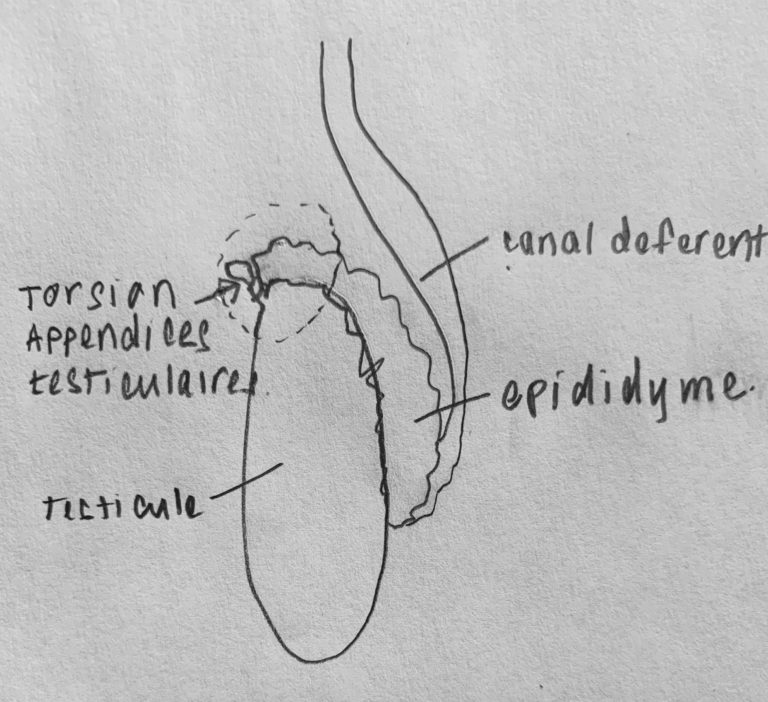 canal deferent
Torsian
Appendices
testiculaires.
epididyme.
testicule